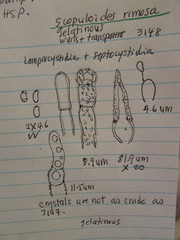 HSP.
Scopuloides rimosa
gelatinous
warts + transparent 3148
Lamprocystidia + Septocystidia
4.6 um
2x4.6
8.9um
81.9um
x 20
11.5um
crystals are not as crude as
3147.
gelatinous